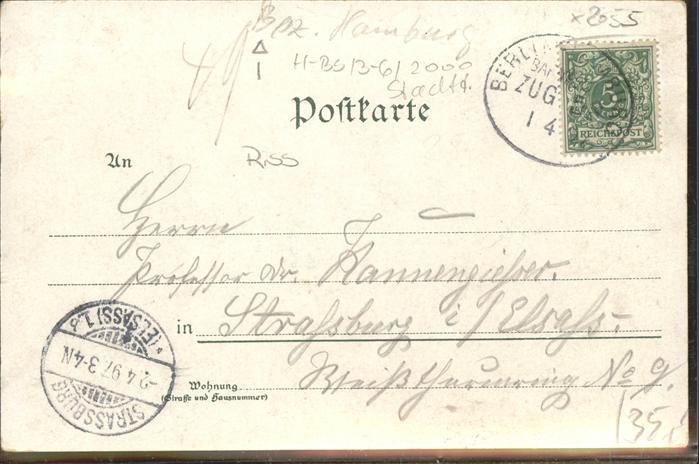 Bez. Hamburg
x2055
H-BS/3-6/2000
Stadtd.
Postkarte
BERLIN
BAHN
ZUG
1 4
5
REICHSPOST
An
Riss
Herrn
Professor Dr. Kannengießer.
in Straßburg i/Elsaß.
Wohnung
(Straße und Hausnummer)
Weißthurmring No 9.
STRASSBURG
(ELSASS) 1.
-2.4.97.3-4N
135,-